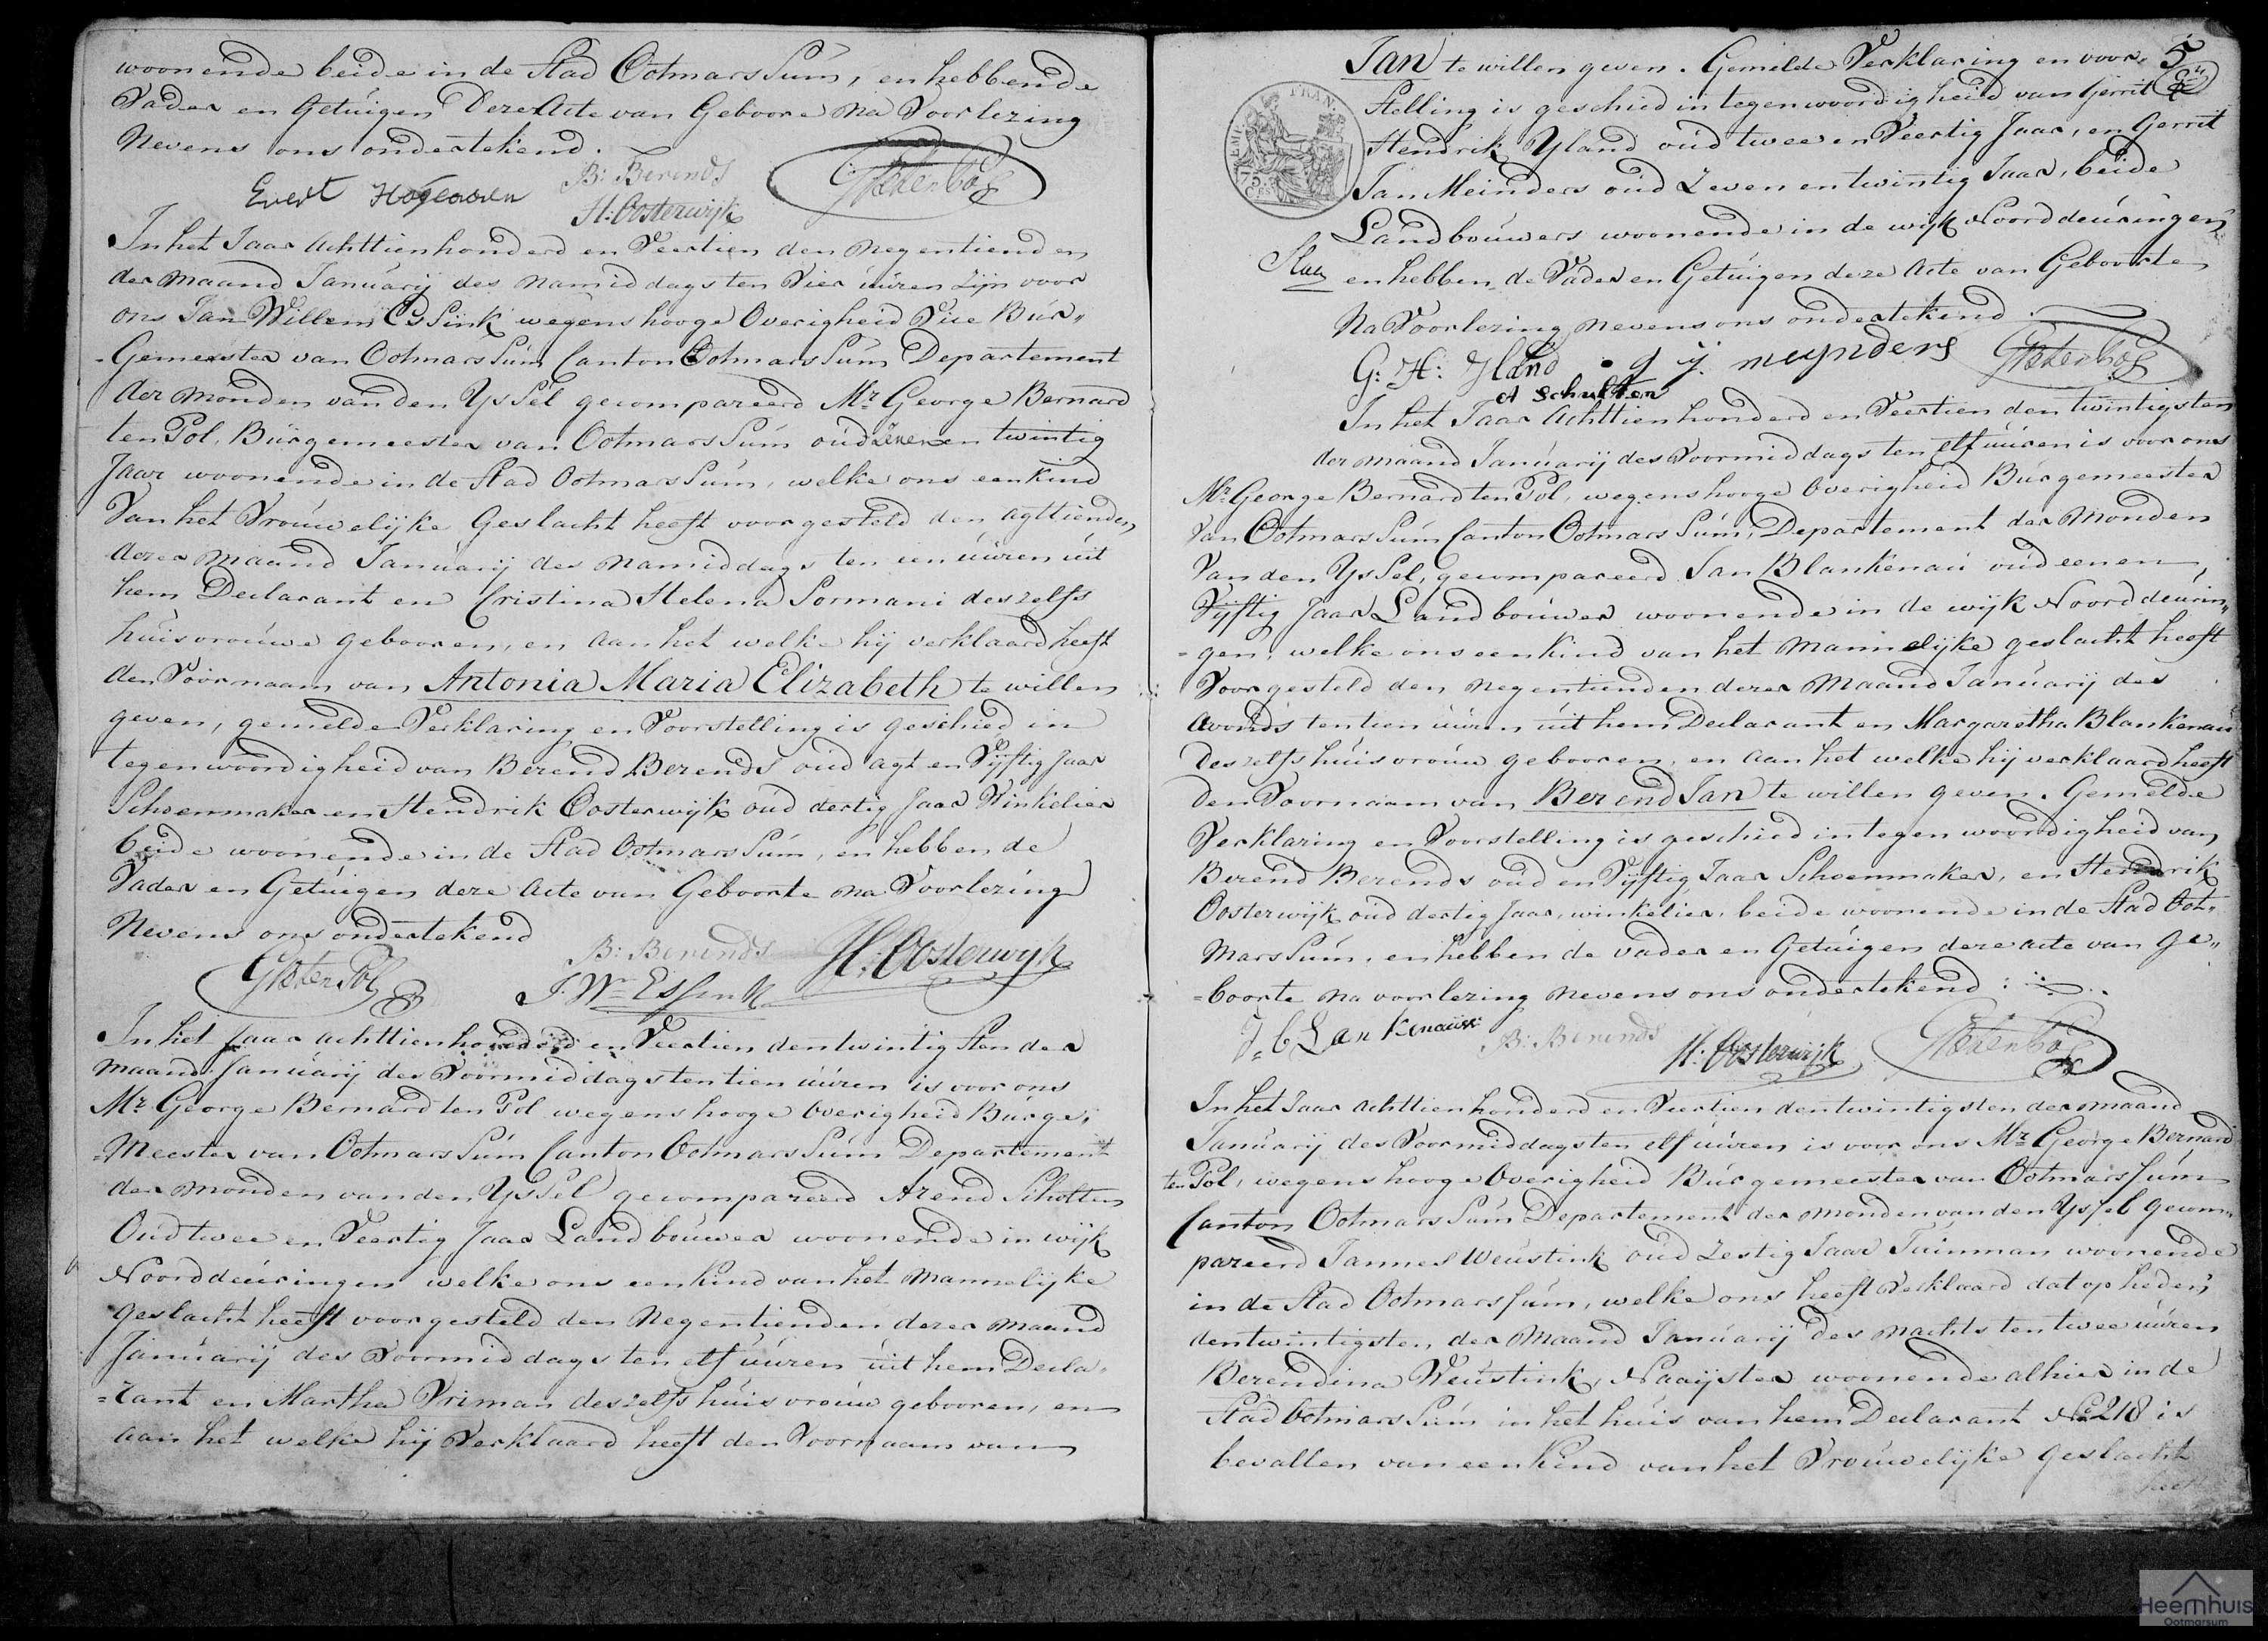 woonende beide in de Stad Ootmarssúm, en hebbende
Vader en Getúigen deze Acte van Geboore na Voorlezing
Nevens ons ondertekend.
Evert Hogeooven B: Berends
H: Oosterwijk
In het Jaar Achttienhonderd en Veertien den negentienden
der maand Janúarij des namiddags ten Vier úúren zijn voor
ons Jan Willem Essink wegens hooge Overigheid Vice Búr„
-Gemeester van Ootmarssúm Canton Ootmarssúm Departement
der monden van den Yssel gecompareerd Mr. George Bernard
ten Pol, Búrgemeester van Ootmarssúm oúd zeven en twintig
Jaar woonende in de Stad Ootmarssúm, welke ons een kind
Van het Vroúwelijke Geslacht heeft voorgesteld den agttienden
dezer maand Janúarij des namiddags ten een úúren úit
hem Declarant en Cristina Helena Sormani deszelfs
húisvroúwe gebooren, en aan het welke hij verklaard heeft
den Voornaam van Antonia Maria Elizabeth te willen
geven, gemelde Verklaring en Voorstelling is geschied in
tegenwoordigheid van Berend Berends oúd agt en Vijftig Jaar
Schoenmaker en Hendrik Oosterwijk oúd dertig Jaar Winkelier
beide woonende in de Stad Ootmarssúm, en hebben de
Vader en Getúigen deze Acte van Geboorte na Voorlezing
Nevens ons ondertekend
B: Berends H: Oosterwijk
GB ten Pol J Wm Essink
In het Jaar achttienhonderd en Veertien den twintigsten der
maand Janúarij des Voormiddags ten tien úúren is voor ons
Mr. George Bernard ten Pol wegens hooge Overigheid Búrge„
-Meester van Ootmarssúm Canton Ootmarssúm Departement
der monden van den Yssel gecompareerd Arend Scholten
Oúd twee en Veertig Jaar Landboúwer woonende in wijk
Noorddeúringen welke ons een kind van het mannelijke
geslacht heeft voorgesteld den Negentienden dezer maand
Janúarij des Voormiddags ten elf úúren úit hem Decla„
-rant en Martha Vriman deszelfs húisvroúw gebooren, en
aan het welke hij Verklaard heeft den Voornaam van
Jan te willen geven. Gemelde Verklaring en voor„ 5
Stelling is geschied in tegenwoordigheid van Gerrit
Hendrik Yland oúd twee en Veertig Jaar, en Gerrit
Jan Meinders oúd Zeven en twintig Jaar, beide
Landboúwers woonende in de wijk Noorddeúringen,
en hebben de Vader en Getúigen deze Acte van Geboorte
Na Voorlezing nevens ons ondertekend.
G: H: Yland g j. meynders
A Schulten
In het Jaar Achttienhonderd en Veertien den twintigsten
der maand Janúarij des Voormiddags ten elf úúren is voor ons
Mr. George Bernard ten Pol, wegens hooge Overigheid Búrgemeester
Van Ootmarssúm Canton Ootmarssúm, Departement der Monden
Van den Yssel, gecompareerd Jan Blankenaú oúd een en
Vijftig Jaar Landboúwer woonende in de wijk Noorddeúrin„
-gen, welke ons een kind van het mannelijke geslacht heeft
Voorgesteld den negentienden dezer Maand Janúarij des
Avonds ten tien úúren úit hem Declarant en Margaretha Blankenau
deszelfs húisvroúw gebooren, en aan het welke hij verklaard heeft
den Voornaam van Berend Jan te willen geven. Gemelde
Verklaring en Voorstelling is geschied in tegenwoordigheid van
Berend Berends oúd en Vijftig Jaar Schoenmaker, en Hendrik
Oosterwijk oúd dertig Jaar, winkelier, beide woonende in de Stad Oot„
marssúm, en hebben de vader en Getúigen deze acte van ge„
-boorte na voorlezing nevens ons ondertekend:
B: Berends H: Oosterwijk
In het Jaar achttienhonderd en Veertien den twintigsten der maand
Janúarij des Voormiddags ten elf úúren is voor ons Mr. George Bernard
ten Pol, wegens hooge Overigheid Búrgemeester van Ootmarssúm
Canton Ootmarssúm Departement der monden van den Yssel gecom„
pareerd Jannes Weústink oúd zestig Jaar Túinman woonende
in de Stad Ootmarssúm, welke ons heeft Verklaard dat op heden,
den twintigsten, der Maand Janúarij des nachts ten twee úúren
Berendina Weústink, Naaijster woonende alhier in de
Stad Ootmarssúm in het húis van hem Declarant No 218 is
bevallen van een kind van het Vroúwelijke geslacht
heef
Heemhuis
Ootmarsum